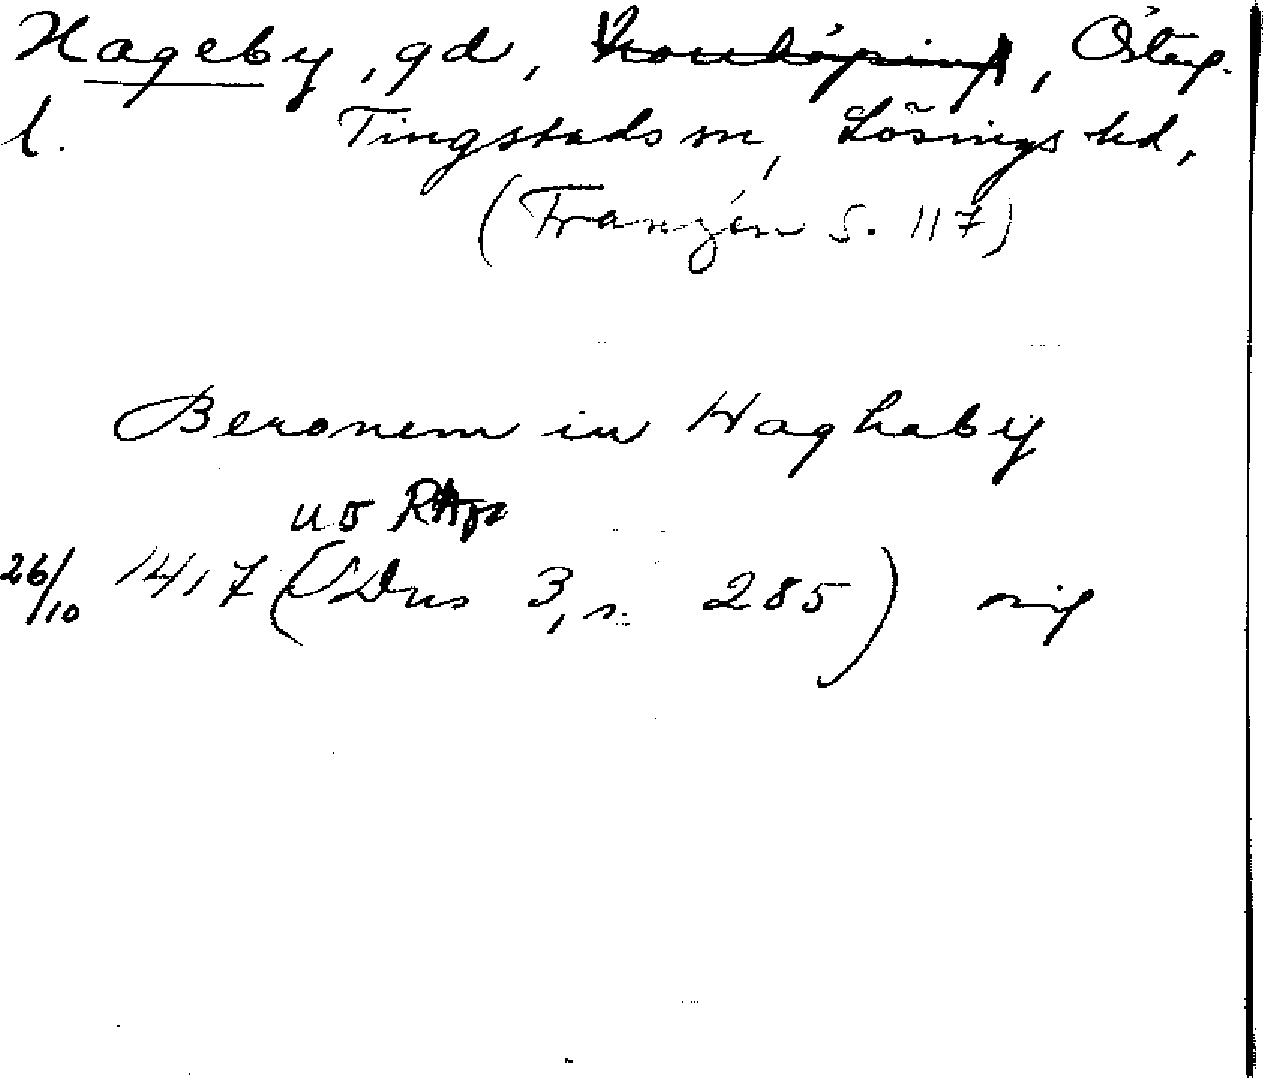 Hageby, gd, Norrköping, Österg.
l. Tingstads sn, Lösings hd,
(Franzén s. 117)
Beronem in Haghaby
uo RAp
26/10 1417 (SDns 3, s. 285) orig